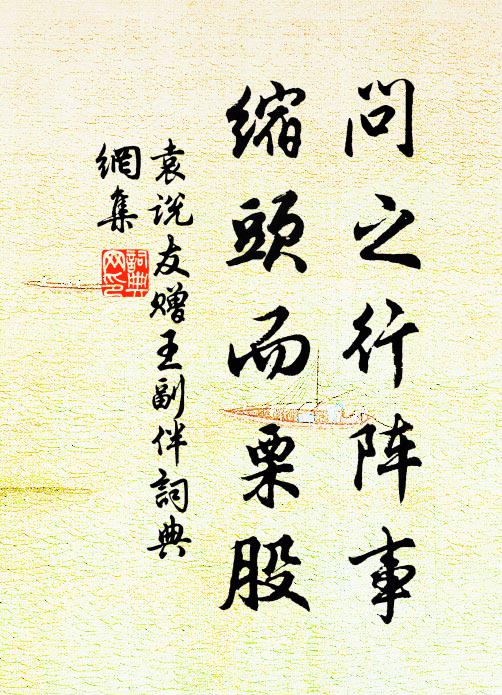 问之行阵事
缩頭而栗股
袁说友赠王副伴詞典
網集
詞典
网印